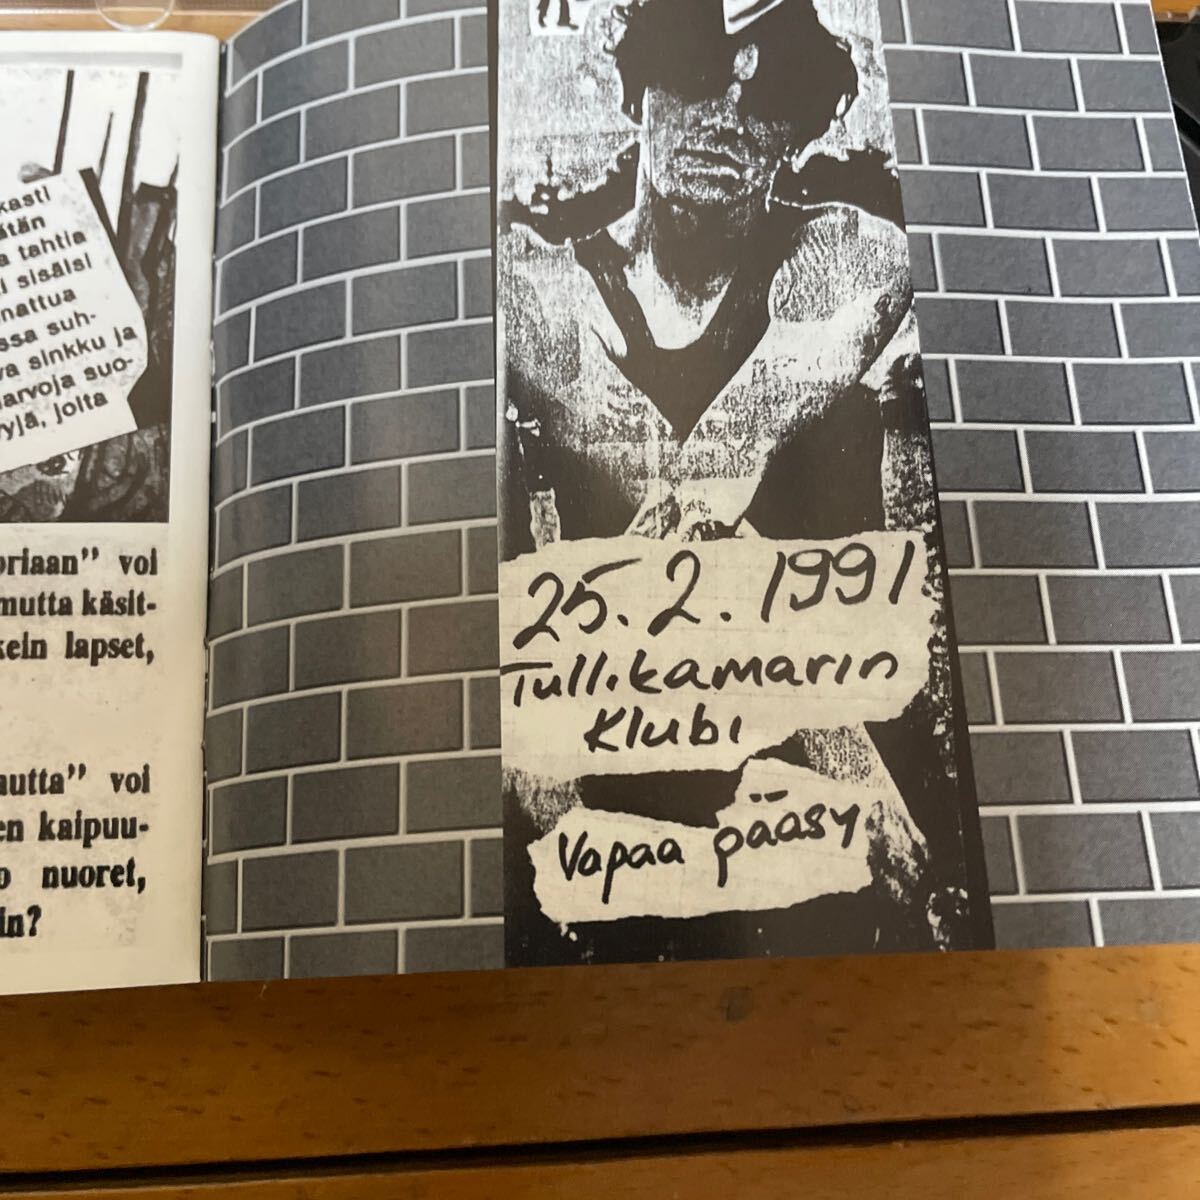 kasti
tahtia
sisäisi
nattua
ssa suh-
va sinkku ja
arvoja suo-
yyjä, joita
oriaan" voi
mutta käsit-
kein lapset,
autta" voi
en kaipuu-
o nuoret,
in?
25.2.1991
Tullikamarin
Klubi
Vapaa pääsy